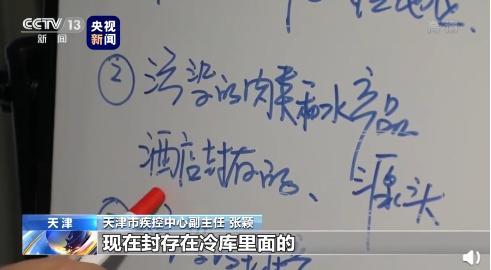 CCTV 13
新闻
央视
新闻
②污染的肉类和水产品
酒店封存的、源头
天津
天津市疾控中心副主任 张颖
现在封存在冷库里面的